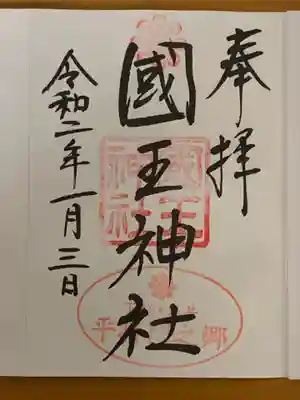 奉拝
國王神社
令和二年一月三日
國王神社